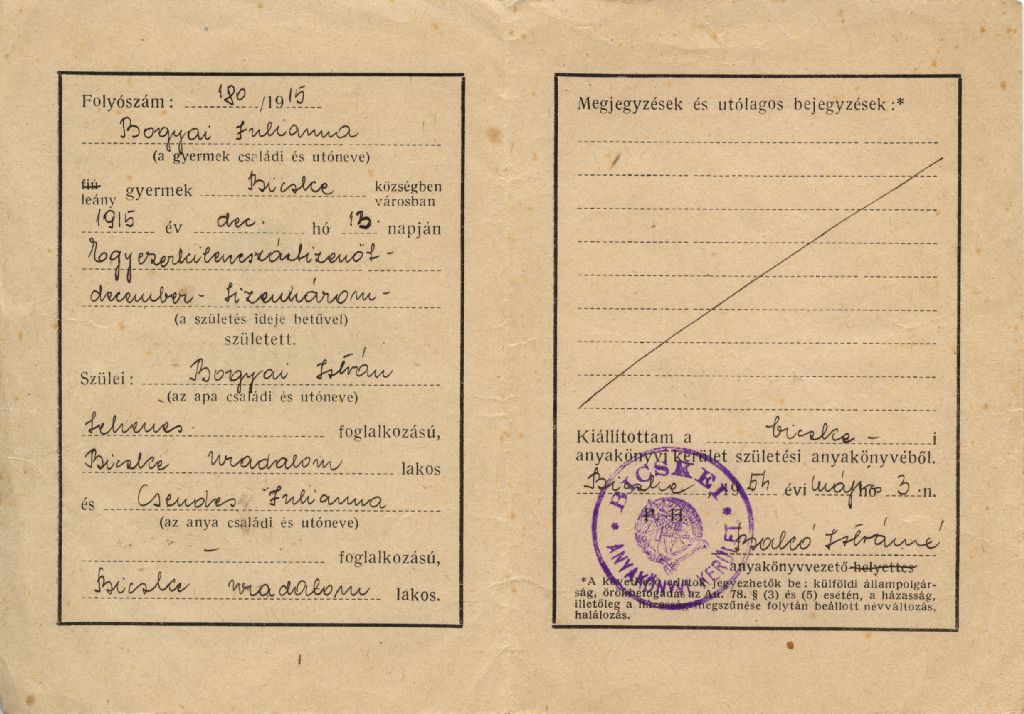 Folyószám: 180/1915
Bogyai Julianna
(a gyermek családi és utóneve)
fiú
leány gyermek Bicske községben
városban
1915 év dec. hó 13 napján
Egyezerkilencszáztizenöt-
december- tizenhárom-
(a születés ideje betűvel)
született.
Szülei: Bogyai István
(az apa családi és utóneve)
foglalkozású,
Bicske uradalom lakos
és Csendes Julianna
(az anya családi és utóneve)
- foglalkozású,
Bicske uradalom lakos.
Megjegyzések és utólagos bejegyzések:*
Kiállítottam a bicske- i
anyakönyvi kerület születési anyakönyvéből.
Bicske 1954 évi május hó 3-n.
P. H.
BICSKEI ANYAKÖNYVI KERÜLET
Balkó Istvánné
anyakönyvvezető helyettes
*A következő adatok jegyezhetők be: külföldi állampolgár-
ság, örökbefogadás az Au. 78. § (3) és (5) esetén, a házasság,
illetőleg a házasság megszűnése folytán beállott névváltozás,
halálozás.